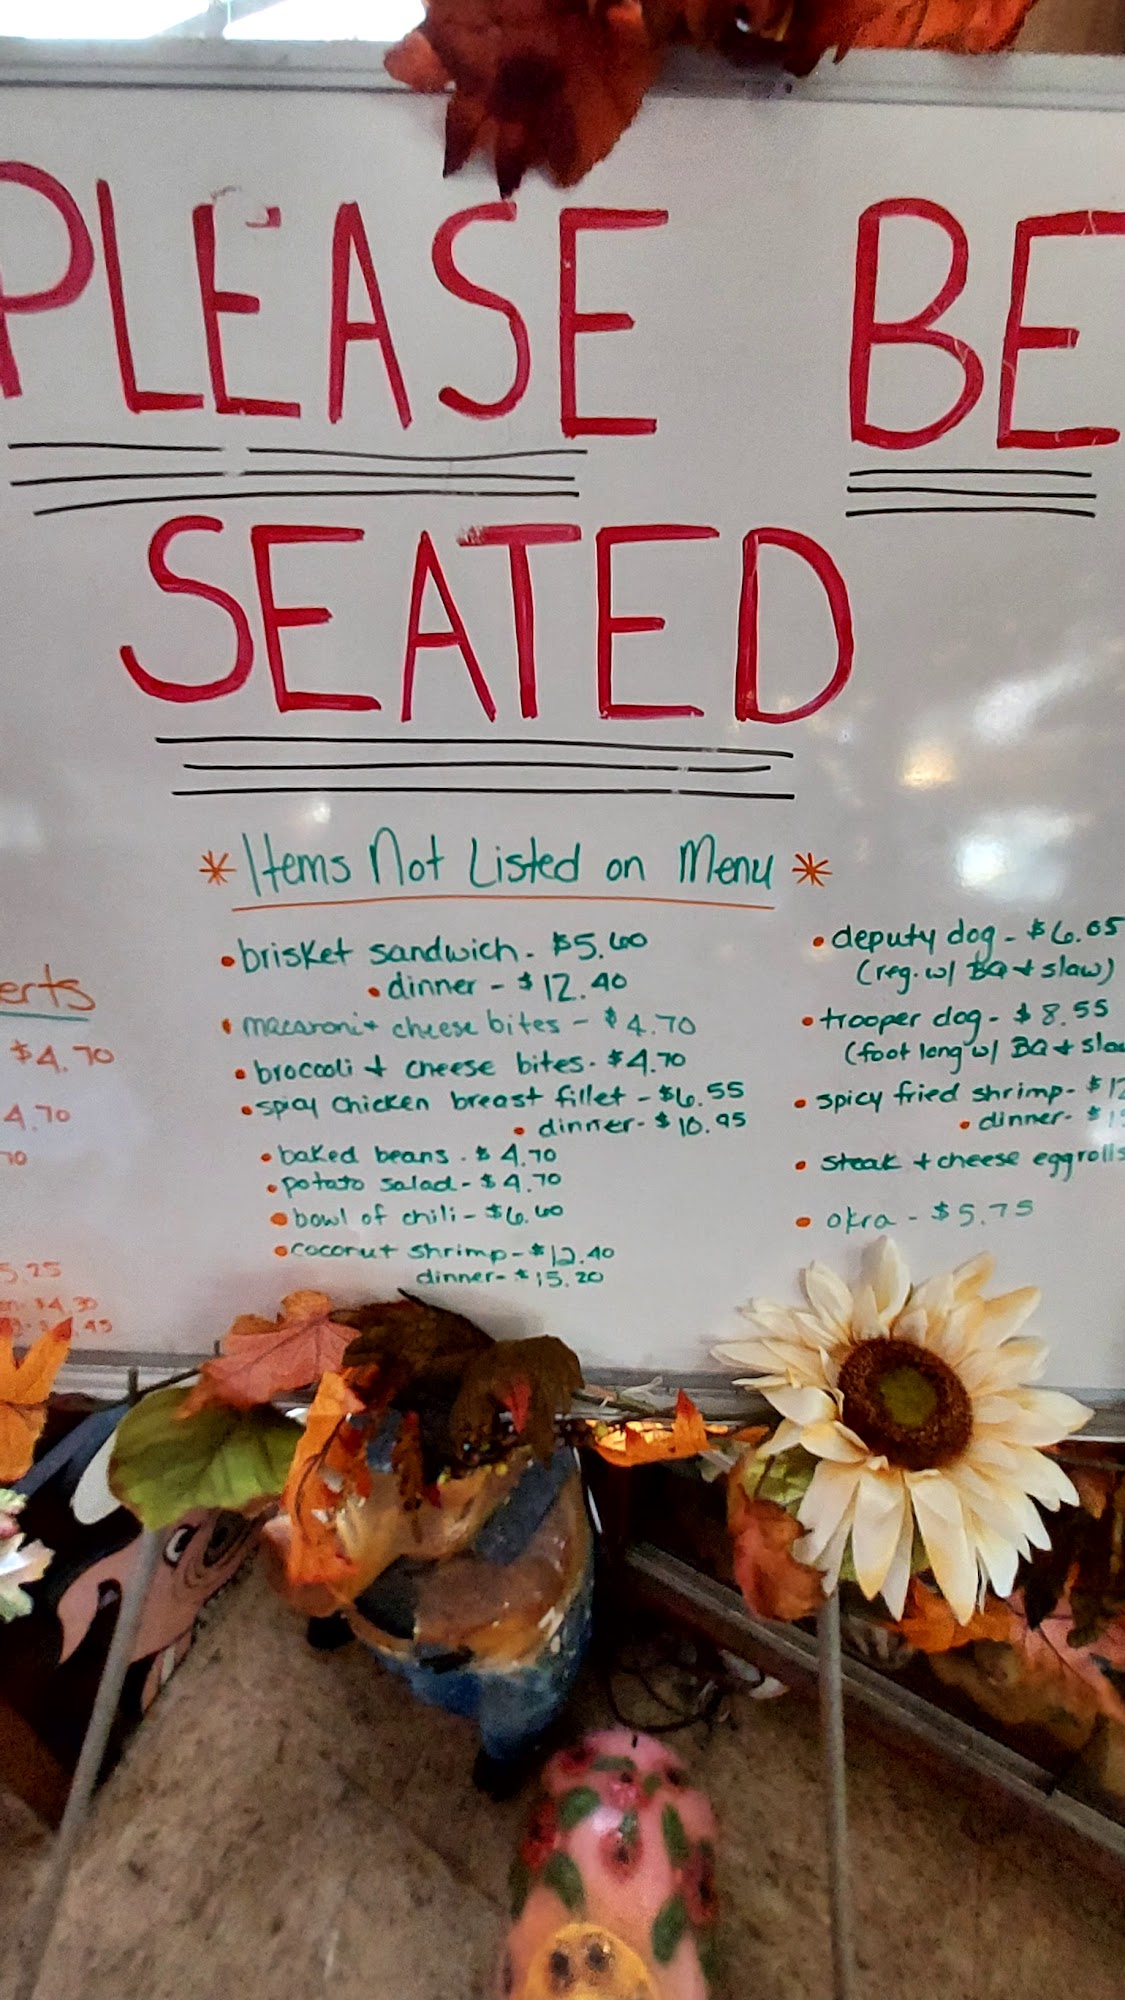 PLEASE BE
SEATED
* Items Not Listed on Menu *
• brisket sandwich - $5.60
• dinner - $12.40
• macaroni + cheese bites - $4.70
• broccoli + cheese bites - $4.70
• spicy chicken breast fillet - $6.55
• dinner - $10.95
• baked beans - $4.70
• potato salad - $4.70
• bowl of chili - $6.60
• coconut shrimp - $12.40
dinner - $15.20
• deputy dog - $6.05
(reg. w/ BQ + slaw)
• trooper dog - $8.55
(foot long w/ BQ + slaw
• spicy fried shrimp - $12
• dinner - $
• steak + cheese eggrolls
• okra - $5.75
erts
$4.70
4.70
70
5.25
$4.30
.45